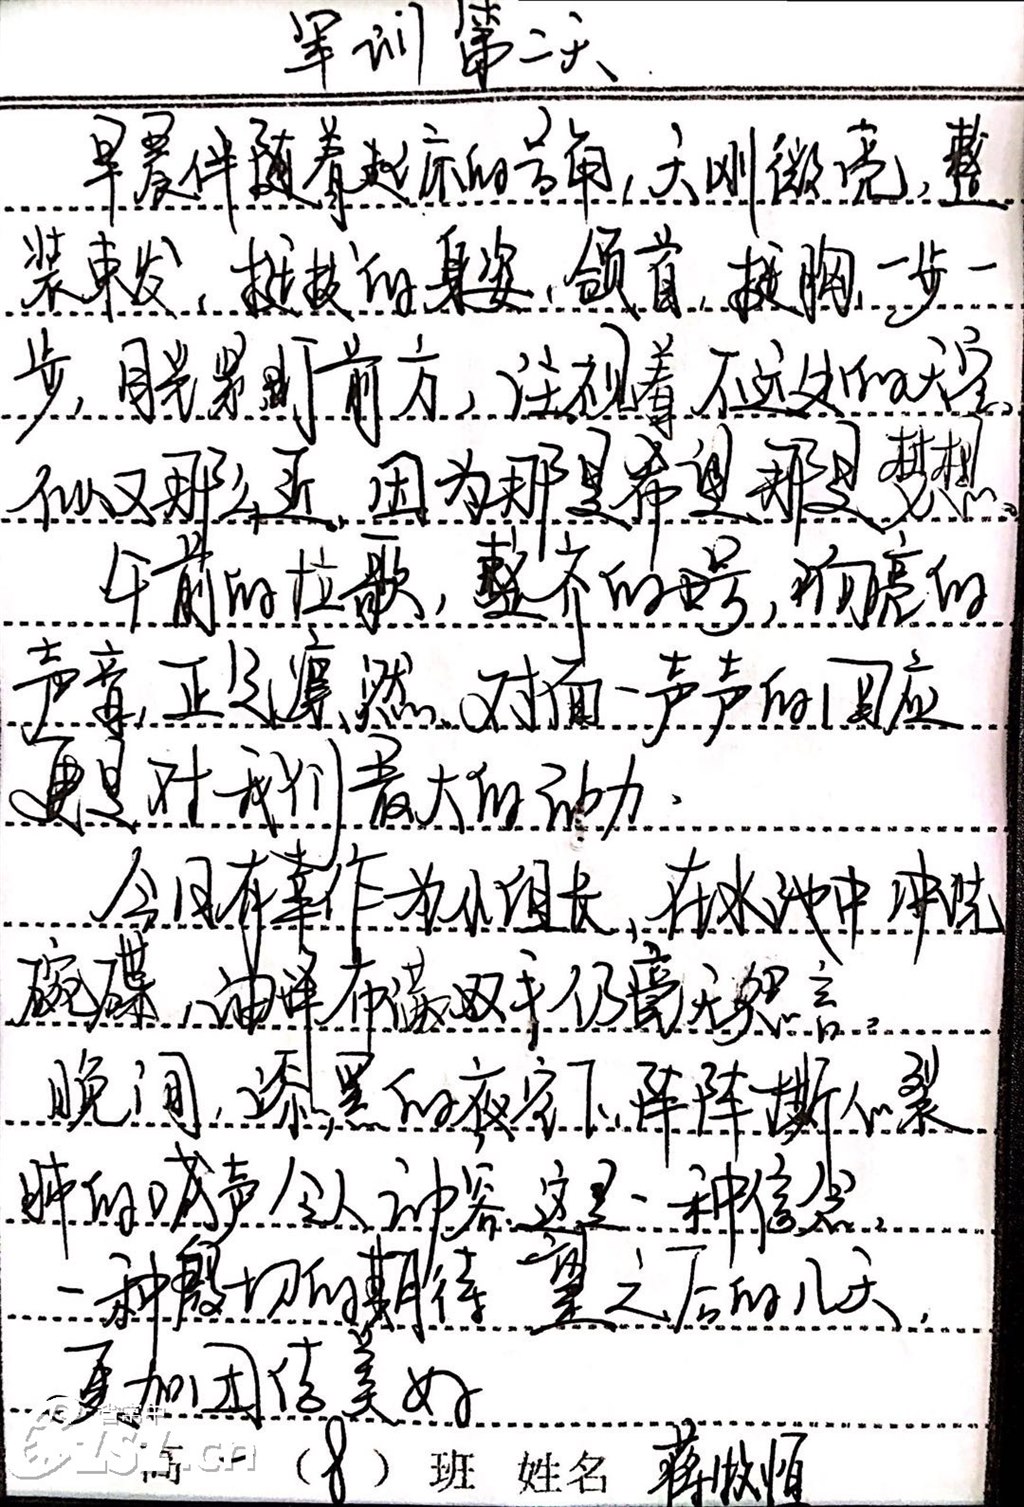 军训第二天
早晨伴随着起床的号角,天刚微亮,整
装束发,挺拔的身姿,颔首,挺胸,一步一
步,目光紧盯前方,注视着不远处的天空,
似又那么近,因为那是希望那是梦想。
午前的拉歌,整齐的口号,嘹亮的
声音,正气凛然。对面一声声的回应
更是对我们最大的动力.
今日有幸作为小组长,在水池中冲洗
碗碟,油渍布满双手仍毫无怨言。
晚间,漆黑的夜空下,阵阵撕心裂
肺的喊声令人动容.这是一种信念,
一种殷切的期待 望之后的几天,
更加团结美好
高一(8)班 姓名 蒋牧恒
档案中
ZSZ.cn